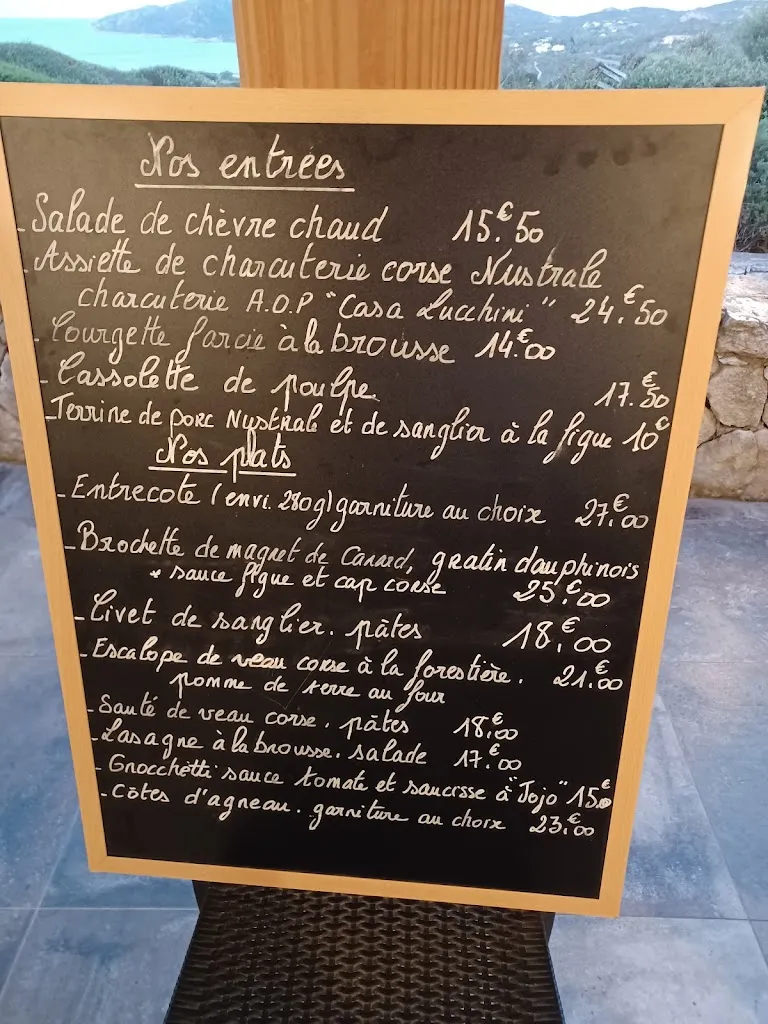 Nos entrées
- Salade de chèvre chaud 15.€50
- Assiette de charcuterie corse Nustrale
charcuterie A.O.P "Casa Lucchini" 24.€50
- Courgette farcie à la brousse 14.€00
- Cassolette de poulpe 17.€50
- Terrine de porc Nustrale et de sanglier à la figue 10€
Nos plats
- Entrecote (envi. 280g) garniture au choix 27.€00
- Brochette de magret de Canard, gratin dauphinois
* sauce figue et cap corse 25.€00
- Civet de sanglier. pâtes 18.€00
- Escalope de veau corse à la forestière. 21.€00
pomme de terre au four
- Sauté de veau corse. pâtes 18.€00
- Lasagne à la brousse. salade 17.€00
- Gnocchetti sauce tomate et saucisse à "Jojo" 15.€
- Côtes d'agneau. garniture au choix 23.€00